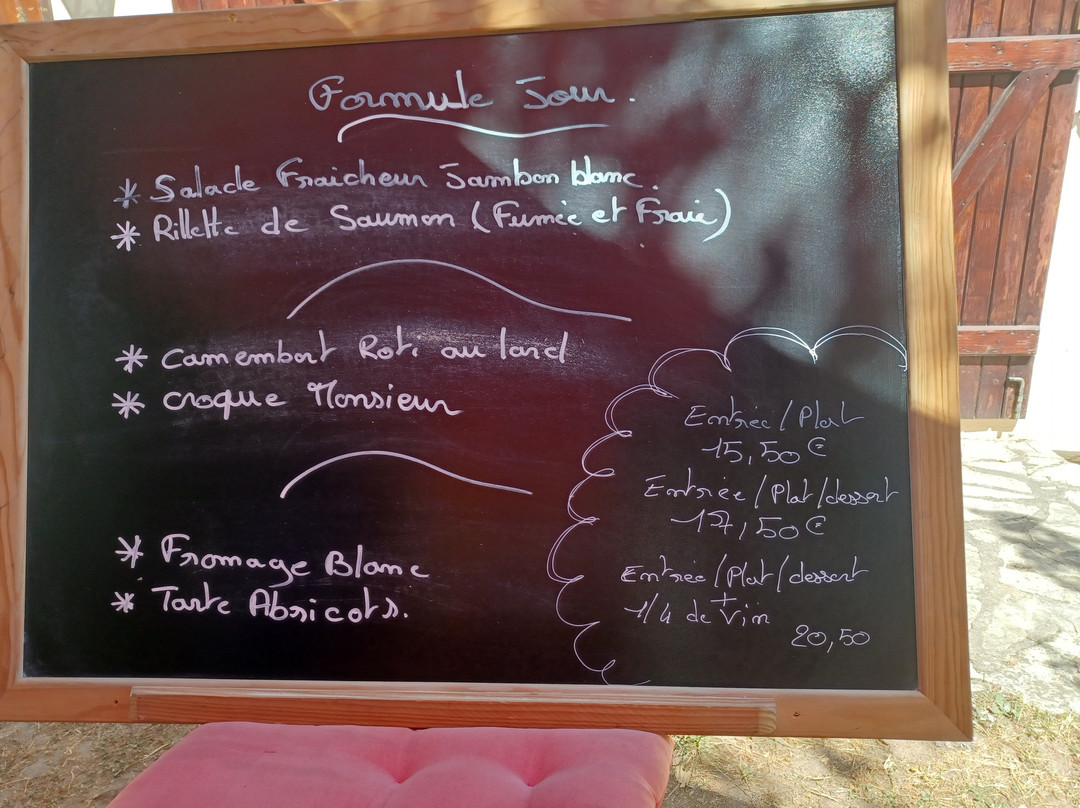 Formule Jour.
* Salade Fraicheur Jambon blanc.
* Rillette de Saumon (Fumée et Fraie)
* Camembert Roti au lard
* Croque Monsieur
* Fromage Blanc
* Tarte Abricots.
Entrée/Plat
15,50€
Entrée/Plat/dessert
17,50€
Entrée/Plat/dessert
+
1/4 de Vin
20,50